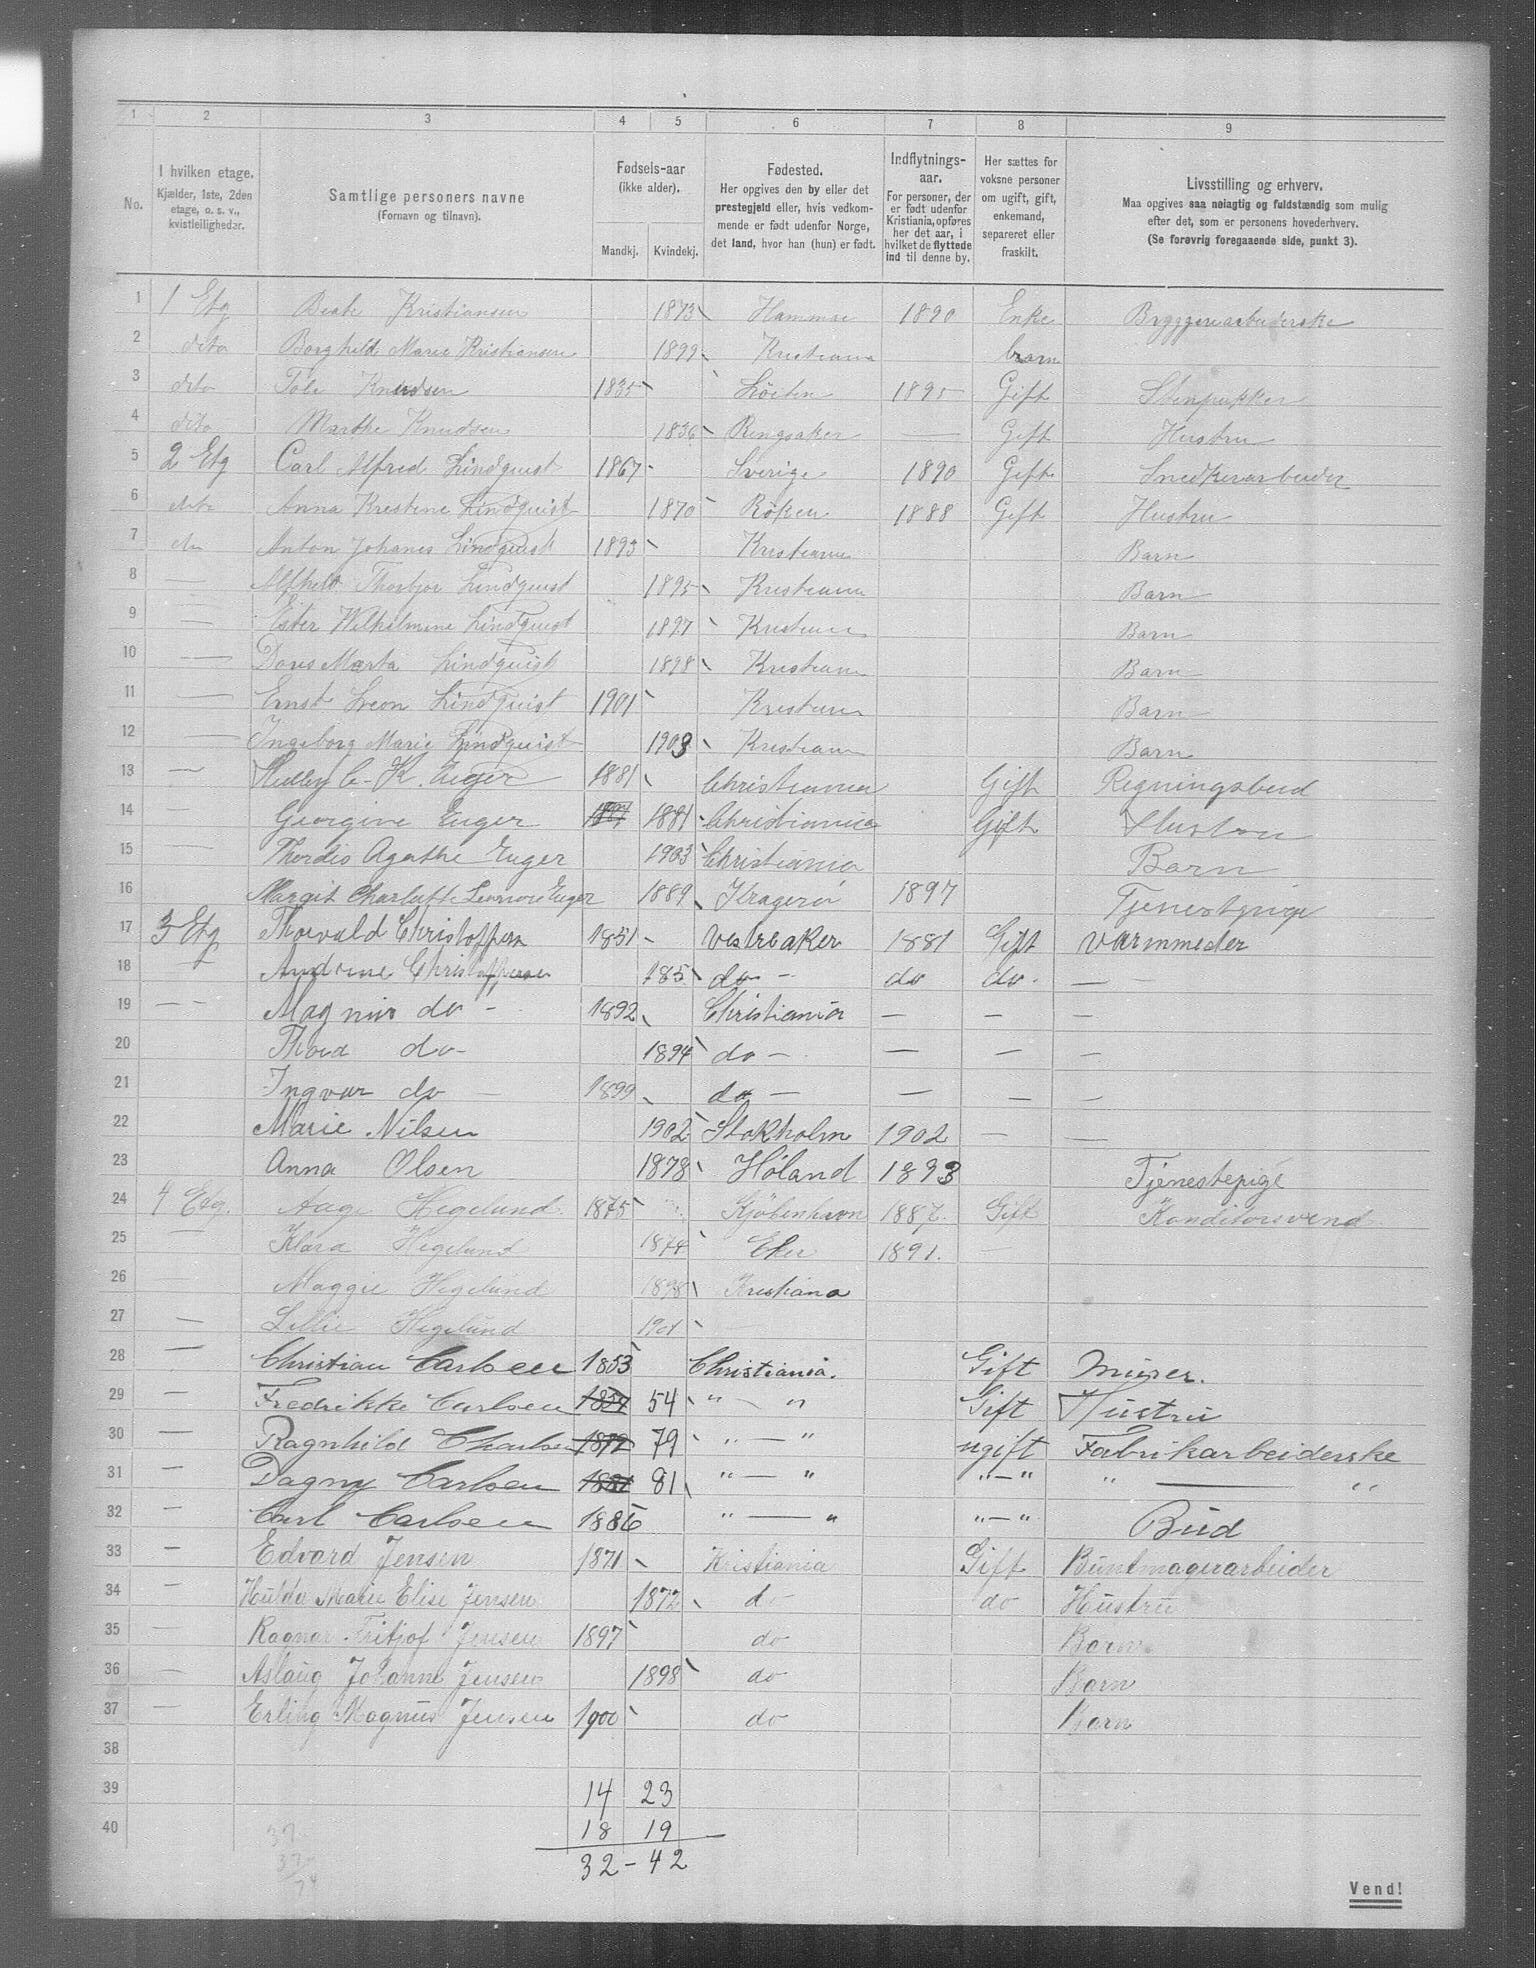 1 2 3 4 5 6 7 8 9
No. I hvilken etage. Kjælder, 1ste, 2den etage, o. s. v., kvistleiligheder. Samtlige personers navne (Fornavn og tilnavn). Fødsels-aar (ikke alder). Mandkj. Kvindekj. Fødested. Her opgives den by eller det prestegjeld eller, hvis vedkommende er født udenfor Norge, det land, hvor han (hun) er født. Indflytnings-aar. For personer, der er født udenfor Kristiania, opføres her det aar, i hvilket de flyttede ind til denne by. Her sættes for voksne personer om ugift, gift, enkemand, separeret eller fraskilt. Livsstilling og erhverv. Maa opgives saa nøiagtig og fuldstændig som mulig efter det, som er personens hovederhverv. (Se forøvrig foregaaende side, punkt 3).
1 1 Etg Beate Kristiansen 1873 1890 Enke Bryggeriarbeiderske
2 dito Borghild Marie Kristiansen 1899 Kristiania barn
3 dito Tole Knudsen 1835 Löiten 1895 Gift Stenpukker
4 dito Marthe Knudsen 1836 Ringsaker — Gift Hustru
5 2 Etg Carl Alfred Lindquist 1867 Sverige 1890 Gift Snedkerarbeider
6 dito Anna Kristine Lindquist 1870 Röken 1888 Gift Hustru
7 Anton Johanes Lindquist 1893 Kristiania Barn
8 — Alfhild Thorbjør Lindquist 1895 Kristiania Barn
9 — Ester Wilhelmine Lindquist 1897 Kristiania Barn
10 — Doris Marta Lindquist 1898 Kristiania Barn
11 — Ernst Leon Lindquist 1901 Kristiania Barn
12 — Ingeborg Marie Lindquist 1903 Kristiania Barn
13 — C. K. Euger 1881 Christiania Gift Regningsbud
14 — Georgine Euger 1881 Christiania Gift Hustru
15 — Thordis Agathe Euger 1903 Christiania Barn
16 Margit Charlotte Leonore Euger 1889 Kragerö 1897 Tjenestpige
17 3 Etg Thorvald Christoffersen 1851 Vestreaker 1881 Gift Varmmeder
18 — Andrine Christoffersen 185 do — do do. —
19 — Magnus do — 1892 Christiania — — —
20 Thora do — 1894 do — — — —
21 Ingvar do — 1899 do — — — —
22 Marie Nilsen 1902 Stokholm 1902 — —
23 Anna Olsen 1878 Höland 1893 Tjenestepige
24 4 Etg. Aage Hegelund 1875 Kjöbenhavn 1887. Gift Konditorsvend
25 — Klara Hegelund 1874 Eker 1891. —
26 — Maggie Hegelund 1898 Kristiana
27 — Lillie Hegelund 1901 —
28 — Christian Carlsen 1853 Christiania. Gift Murer.
29 — Fredrikke Carlsen 1854 54 " — " Gift Hustru
30 — Ragnhild Charlsen 1879 79 " — " ugift Fabrikarbeiderske
31 — Dagny Carlsen 1881 81 " — " " — " " — "
32 — Carl Carlsen 1886 " — " " — " Bud
33 — Edvard Jensen 1871 Kristiania Gift Buntmagerarbeider
34 — Hulda Marie Elise Jensen 1872 do do Hustru
35 — Ragnar Fritjof Jensen 1897 do Barn
36 — Aslaug Johanne Jensen 1898 do Barn
37 — Erling Magnus Jensen 1900 do Barn
38
39 14 23
40 18 19
32 – 42
37
37
74
Vend!